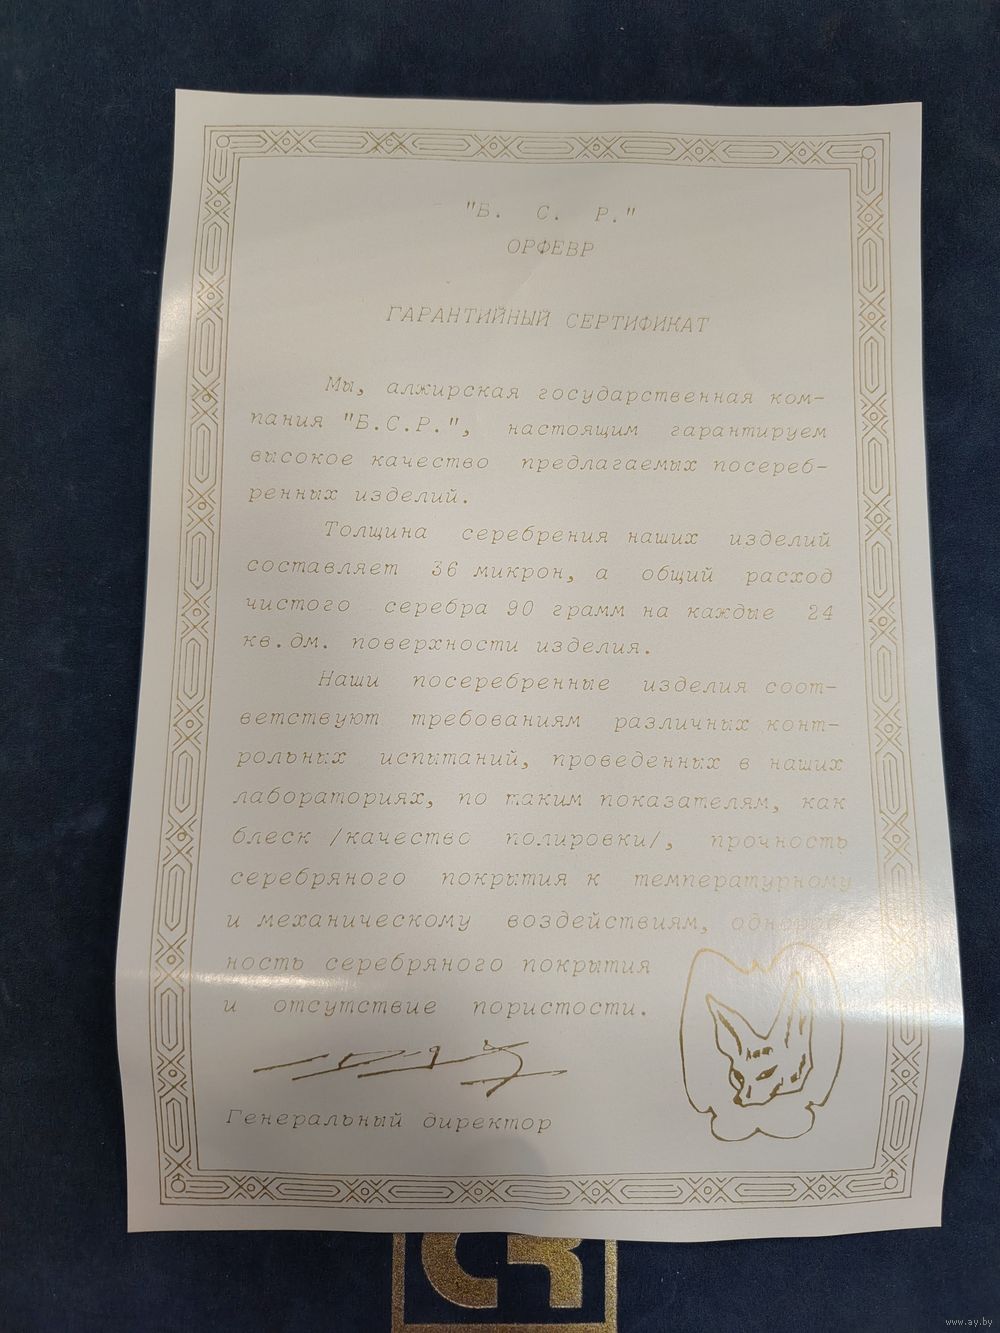 "Б. С. Р."
ОРФЕВР
ГАРАНТИЙНЫЙ СЕРТИФИКАТ
Мы, алжирская государственная ком-
пания "Б.С.Р.", настоящим гарантируем
высокое качество предлагаемых посереб-
ренных изделий.
Толщина серебрения наших изделий
составляет 36 микрон, а общий расход
чистого серебра 90 грамм на каждые 24
кв.дм. поверхности изделия.
Наши посеребренные изделия соот-
ветствуют требованиям различных конт-
рольных испытаний, проведенных в наших
лабораториях, по таким показателям, как
блеск /качество полировки/, прочность
серебряного покрытия к температурному
и механическому воздействиям,
ность серебряного покрытия
и отсутствие пористости.
Генеральный директор
www.ay.by